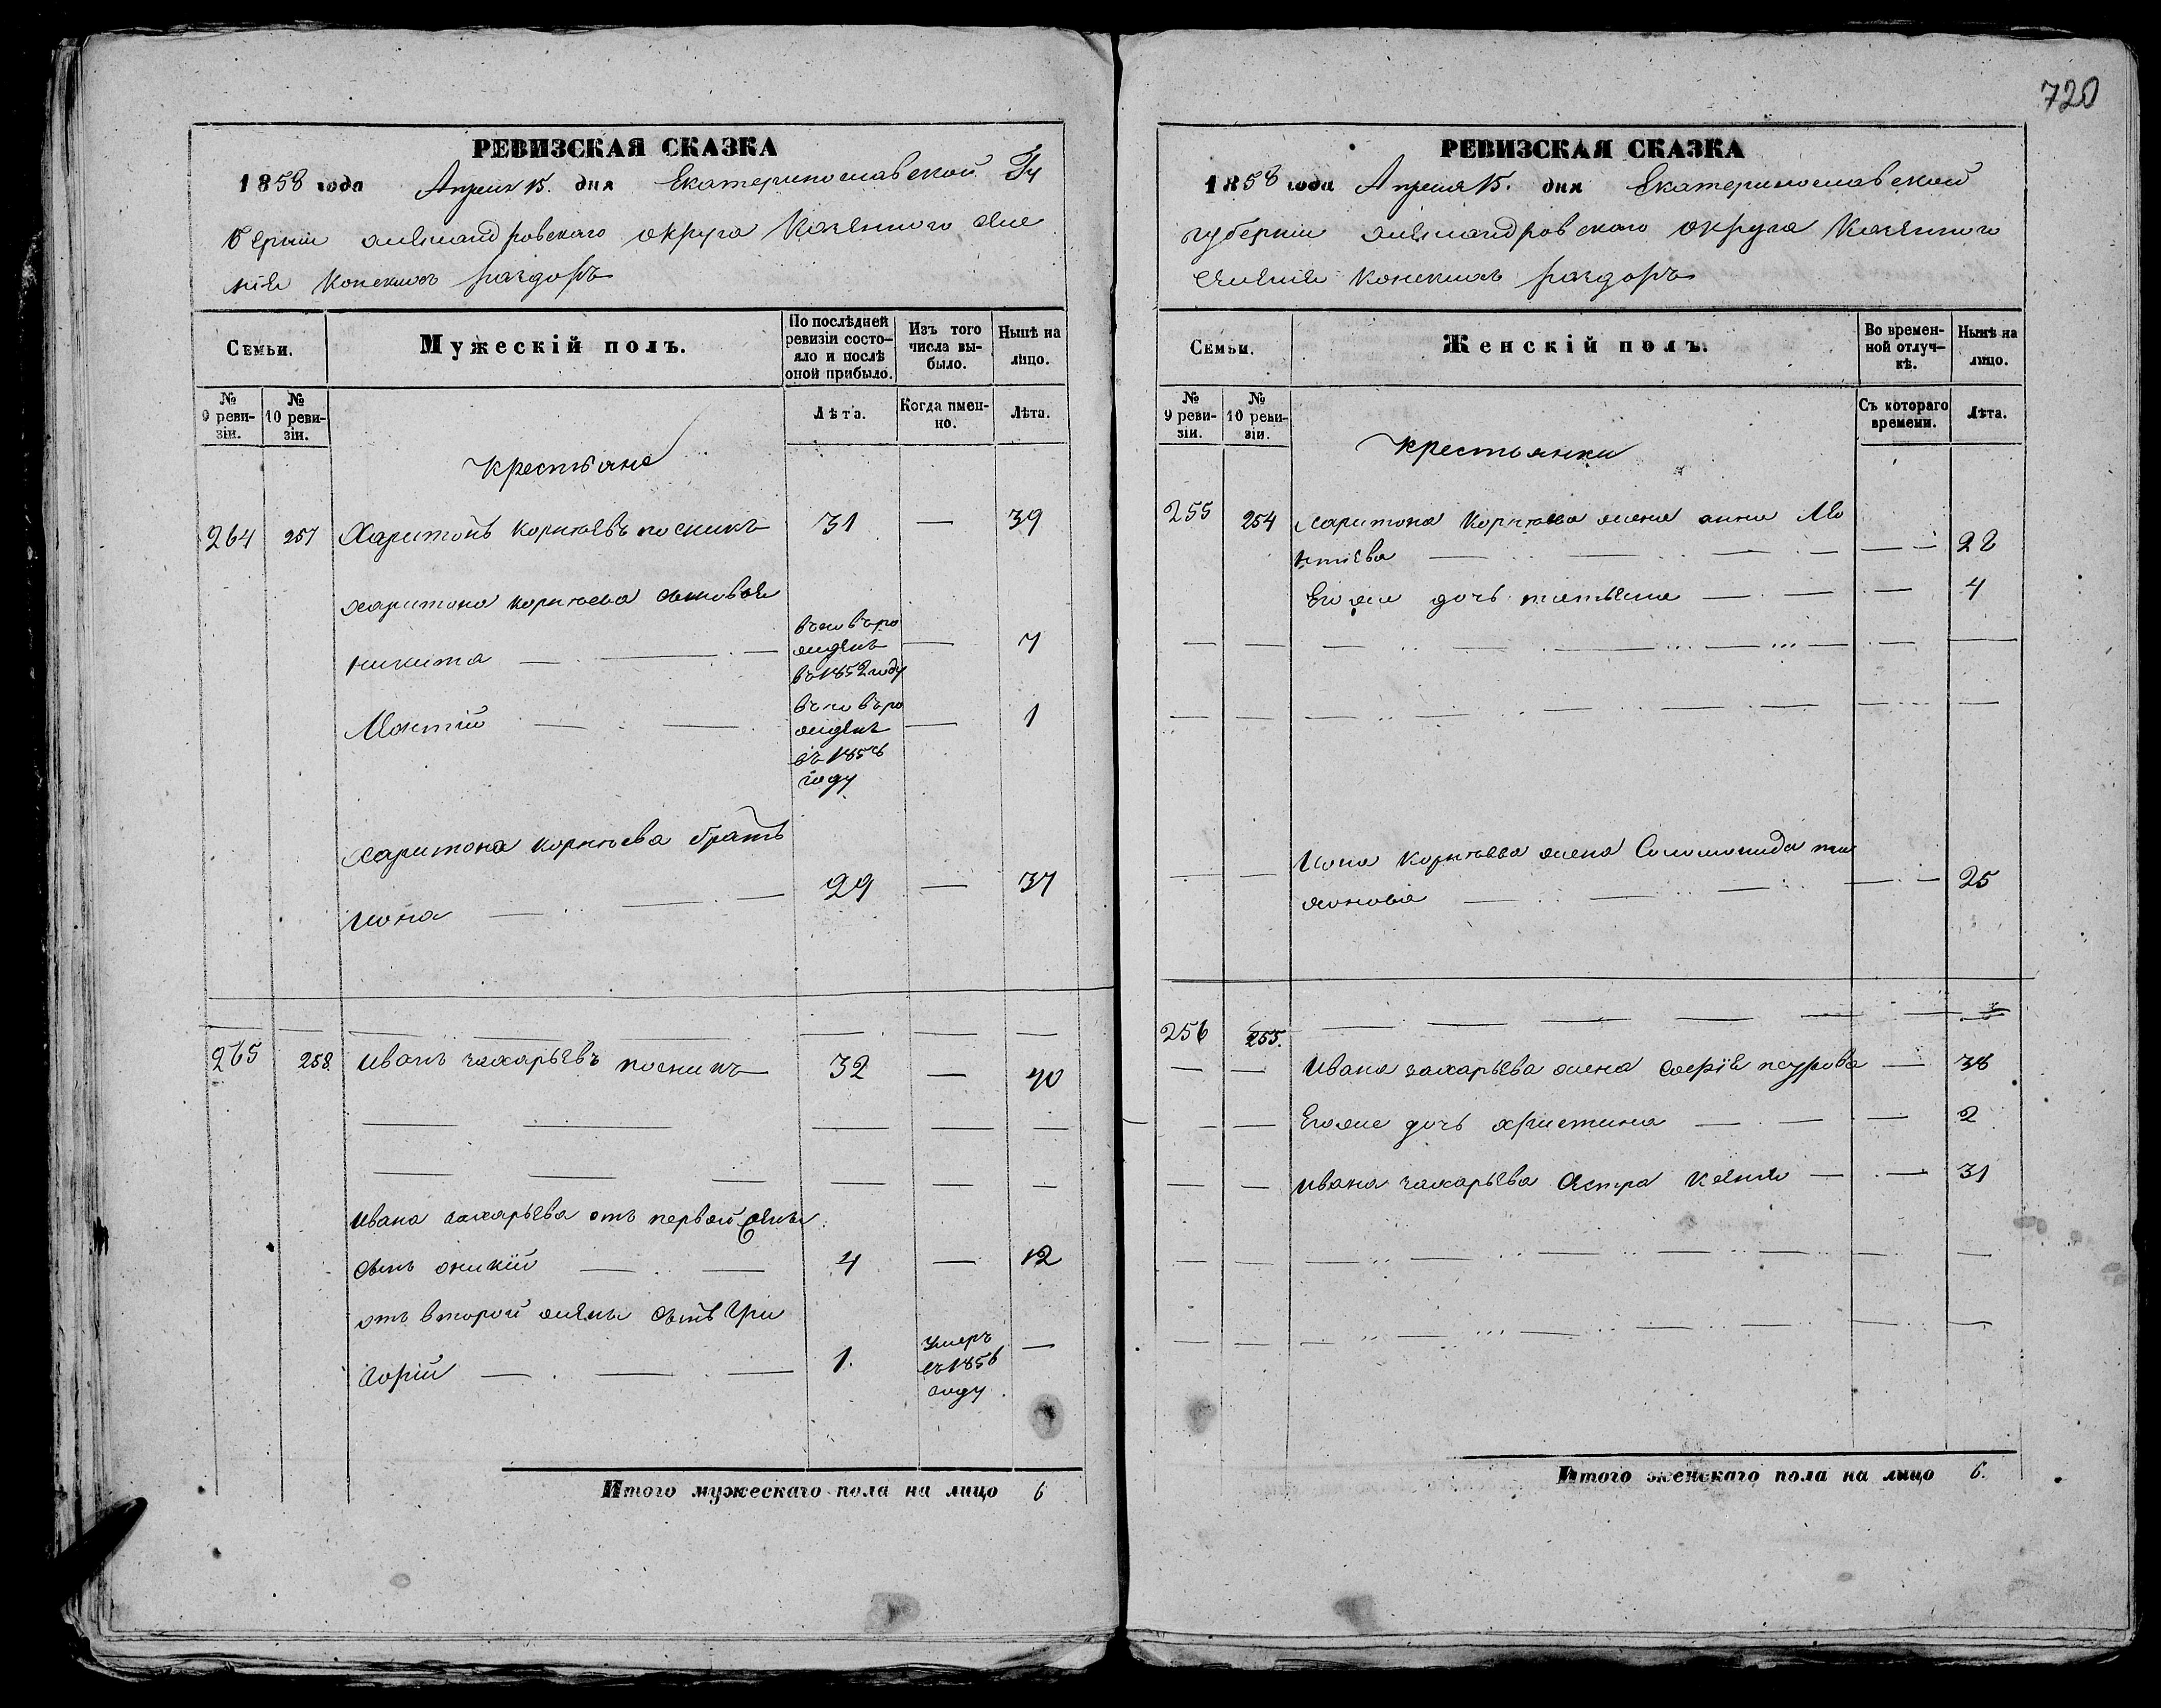 720
РЕВИЗСКАЯ СКАЗКА
1858 года Апреля 15. дня Екатеринославской Гу
берніи александровскаго округа Казенного селе
нія Конскихъ раздоръ
Семьи.
Мужескій полъ.
По послѣдней ревизіи состояло и послѣ оной прибыло.
Изъ того числа выбыло.
Нынѣ на лицо.
№ 9 ревизіи.
№ 10 ревизіи.
Лѣта.
Когда имен- но.
Лѣта.
Крестьяне
264 257 Харитонъ Корнѣевъ 31 — 39
Харитона корнѣева сыновья
никита — вновь ро
жденъ — 7
въ 1852 году
Леонтій — вновь ро
жденъ — 1
въ 1858
году
Харитона корнѣева братъ
Иона — 29 — 37
265 258. Иванъ захарьевъ 32 — 40
Ивана захарьева отъ первой жены
сынъ 4 — 12
отъ второй жены сынъ Гри
горій — 1. умеръ
въ 1856 —
году
Итого мужескаго пола на лицо 6
РЕВИЗСКАЯ СКАЗКА
1858 года Апреля 15. дня Екатеринославской
губерніи александровскаго округа Казенного
селенія Конскихъ раздоръ
Семьи.
Женскій полъ.
Во времен- ной отлуч- кѣ.
Нынѣ на лицо.
№ 9 ревизіи.
№ 10 ревизіи.
Съ котораго времени.
Лѣта.
крестьянки
255 254 Харитона Корнѣева жена анна Ле
нтіева — 28
Егоже дочь татьяна — 4
Иона Корнѣева жена Соломонида
— 25
256 255.
Ивана захарьева жена Софія — 38
Егоже дочь христина — 2
Ивана захарьева сестра — 31
Итого женскаго пола на лицо 6.